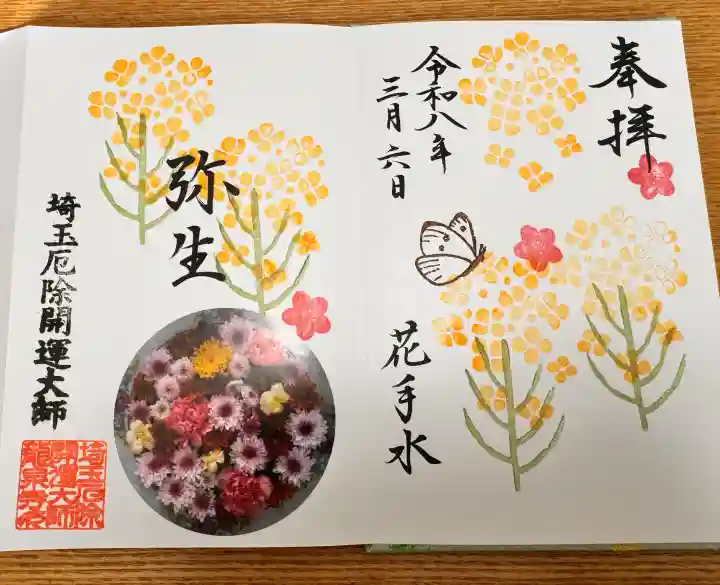 奉拝
令和八年
三月六日
花手水
弥生
埼玉厄除開運大師
埼玉厄除
開運大師
龍泉寺